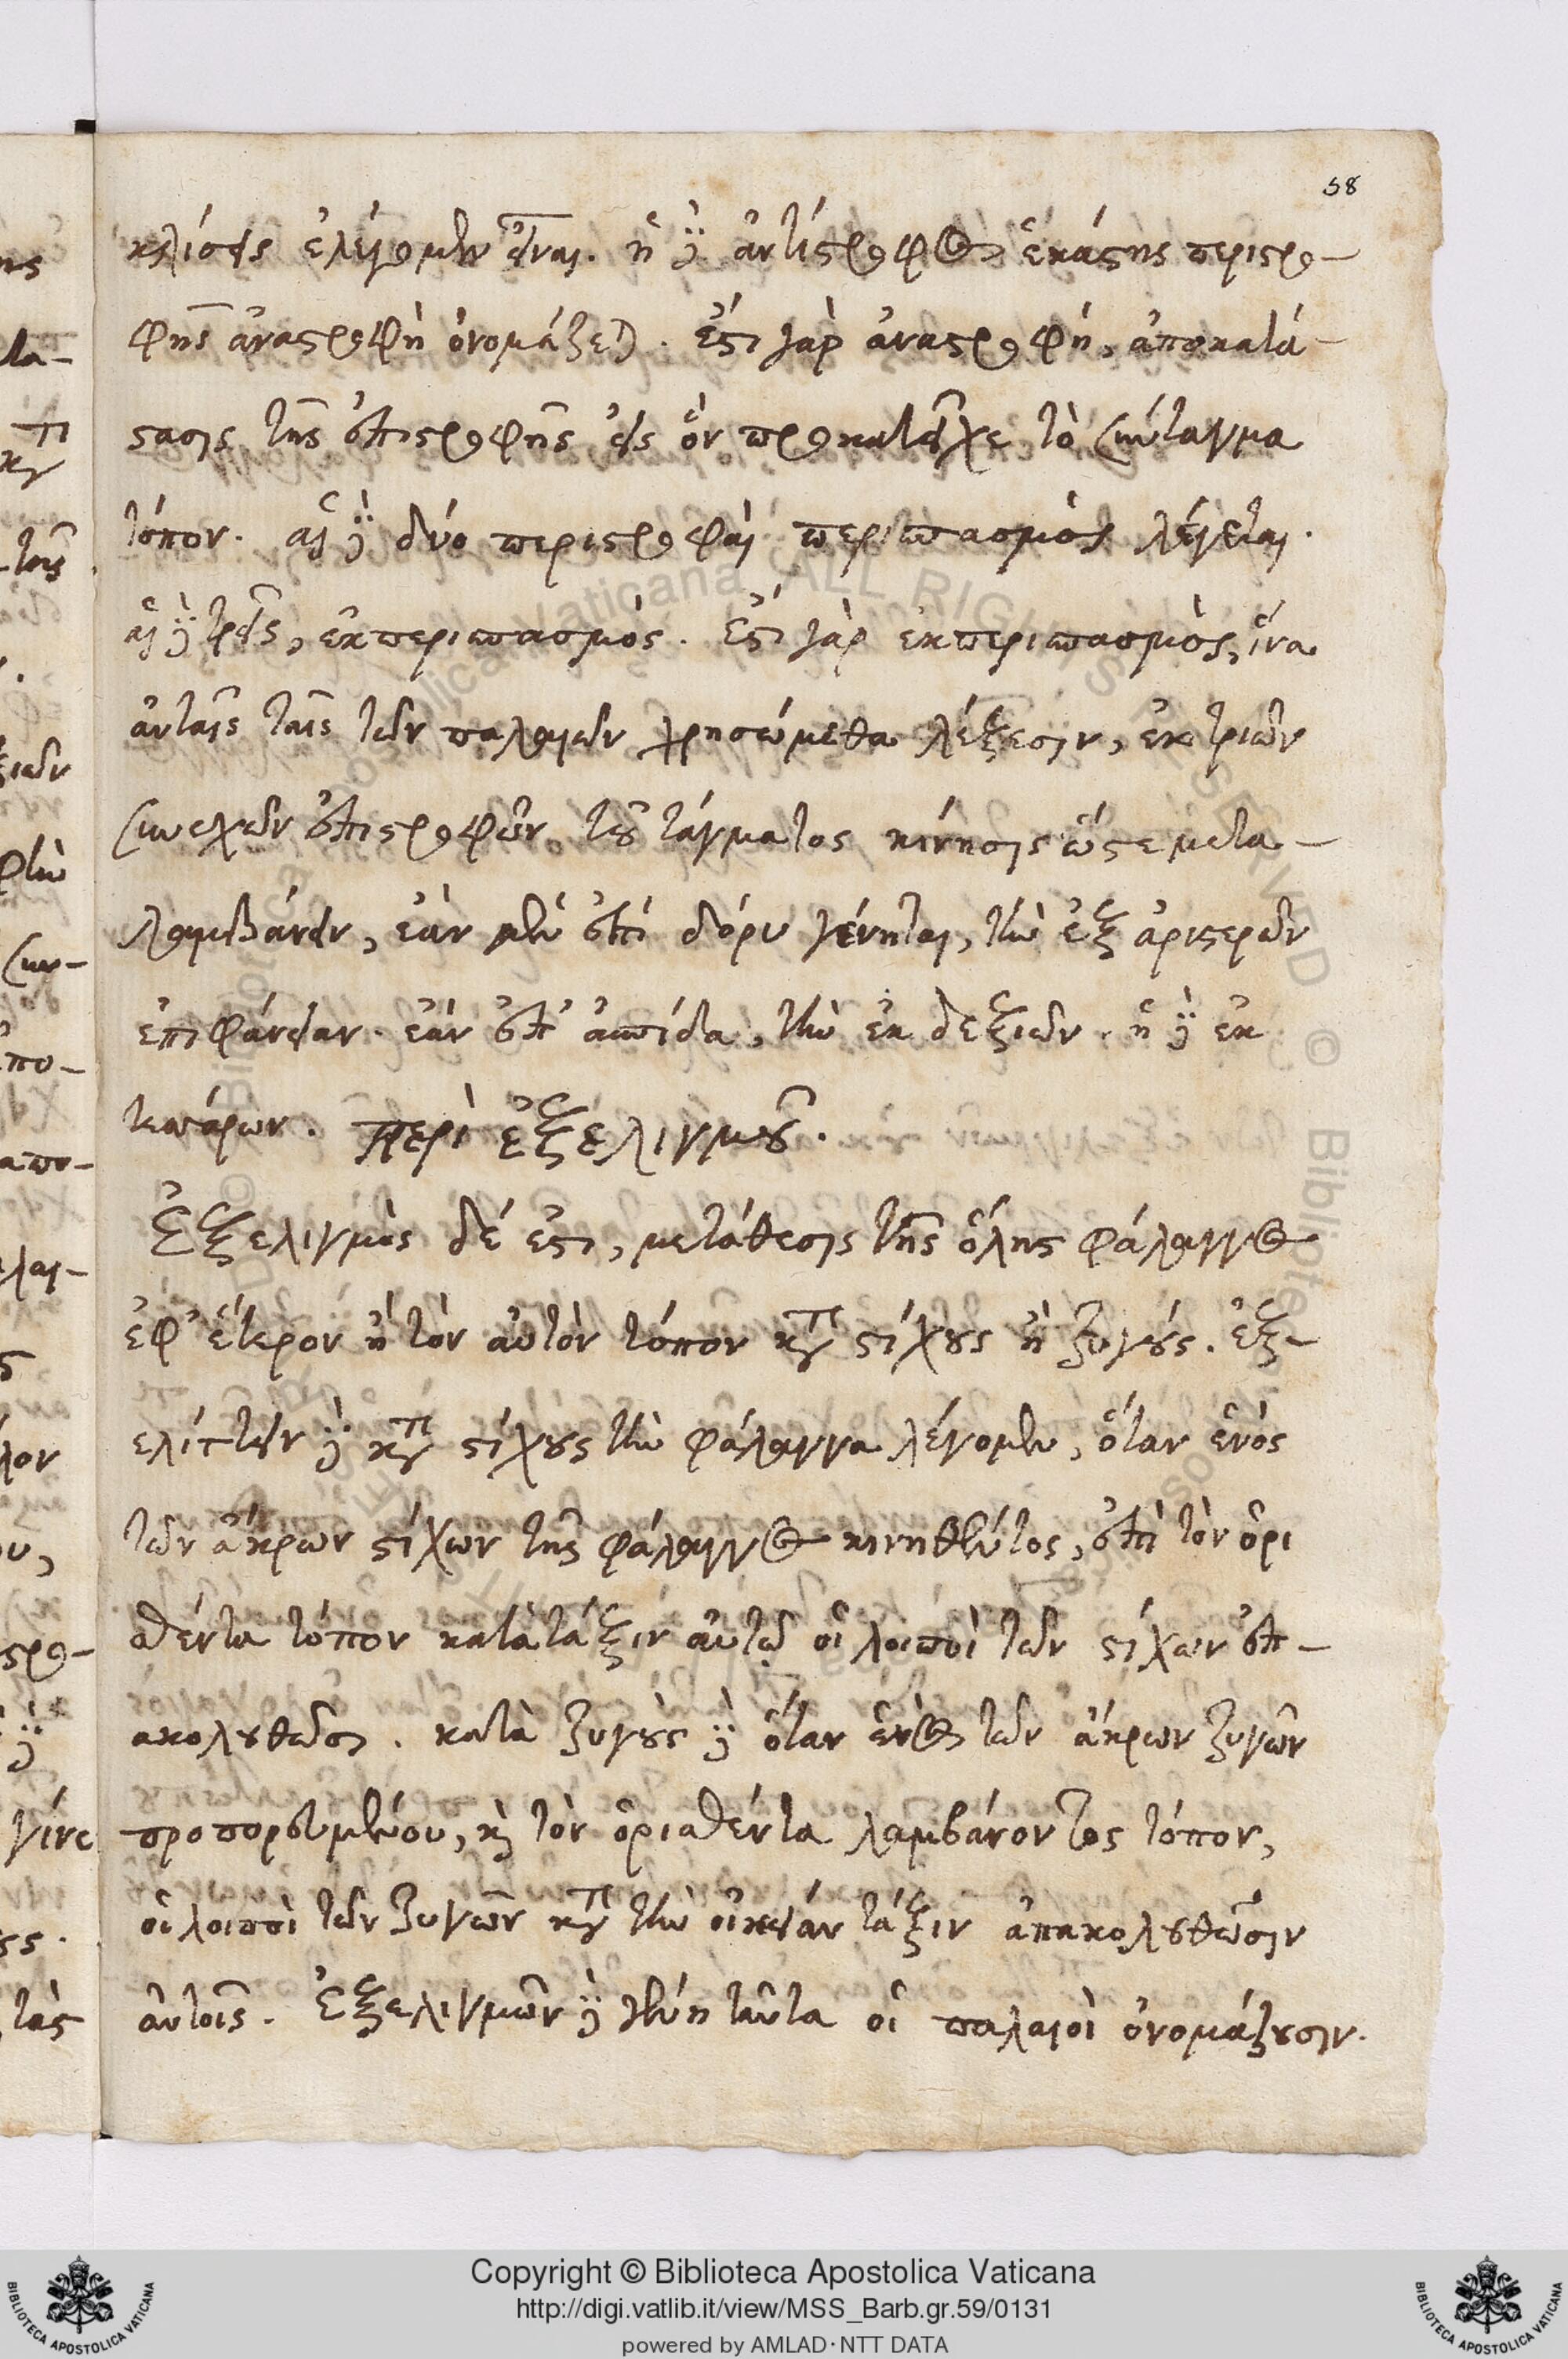 58
κλίσεις ἐλέγομεν εἶναι. ἡ δὲ ἀντίστροφος ἑκάστης περιστρο-
φῆς ἀναστροφὴ ὀνομάζεται. ἔστι γὰρ ἀναστροφή, ἀποκατά-
στασις τῆς ἐπιστροφῆς εἰς ὃν προκατεῖχε τὸ σύνταγμα
τόπον. αἱ δὲ δύο περιστροφαὶ περισπασμὸς λέγεται.
αἱ δὲ τρεῖς, ἐκπερισπασμὸς. ἔστι γὰρ ἐκπερισπασμὸς, ἵνα
αὐταῖς ταῖς τῶν παλαιῶν χρησώμεθα λέξεσιν, ἐκ τριῶν
συνεχῶν ἐπιστροφῶν τοῦ τάγματος κίνησις ὥστε μετα-
λαμβάνειν, ἐὰν μὲν ἐπὶ δόρυ γένηται, τὴν ἐξ ἀριστερῶν
ἐπιφάνειαν. ἐὰν ἐπ' ἀσπίδα, τὴν ἐκ δεξιῶν. ἡ δὲ ἐκ
τεσσάρων. περὶ ἐξελιγμοῦ.
Ἐξελιγμὸς δέ ἐστι, μετάθεσις τῆς ὅλης φάλαγγος
ἐφ' ἕτερον ἢ τὸν αὐτὸν τόπον κατὰ στίχους ἢ ζυγούς. ἐξ-
ελίττειν δὲ κατὰ στίχους τὴν φάλαγγα λέγομεν, ὅταν ἑνὸς
τῶν ἄκρων στίχων τῆς φάλαγγος κινηθέντος, ἐπὶ τὸν ὁρι
σθέντα τόπον κατὰ τάξιν αὐτῷ οἱ λοιποὶ τῶν στίχων ἐπ-
ακολουθῶσι. κατὰ ζυγοὺς δὲ ὅταν ἑνὸς τῶν ἄκρων ζυγῶν
προπορευμένου, καὶ τὸν ὁρισθέντα λαμβάνοντος τόπον,
οἱ λοιποὶ τῶν ζυγῶν κατὰ τὴν οἰκείαν τάξιν ἀπακολουθῶσιν
αὐτοῖς. Ἐξελιγμῶν δὲ γένη ταῦτα οἱ παλαιοὶ ὀνομάζουσιν.
Copyright © Biblioteca Apostolica Vaticana
http://digi.vatlib.it/view/MSS_Barb.gr.59/0131
powered by AMLAD·NTT DATA